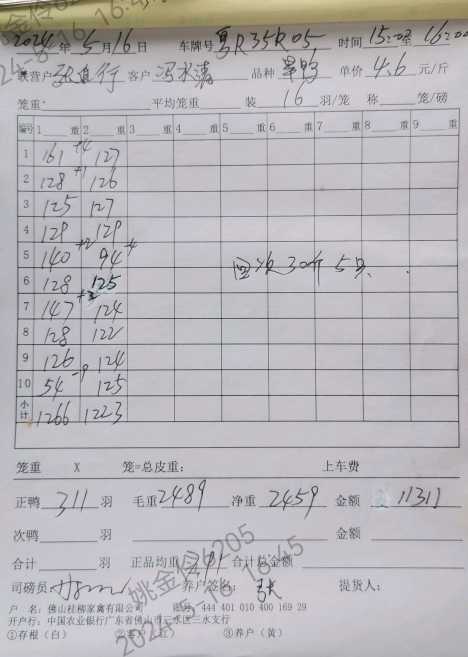 2024年5月16日 车牌号 粤R35R05 时间 15:00至16:00
联营户 张自行 客户 冯水清 品种 旱鸭 单价 4.6 元/斤
笼重: 平均笼重 装 16 羽/笼 称 笼/磅
编号 1 重 2 重 3 重 4 重 5 重 6 重 7 重 8 重 9 重
1 161 +4 127
2 128 +1 126
3 125 127
4 129 129
5 140 +2 94 -4
6 128 125
7 147 +3 124
8 128 122
9 126 124
10 54 -9 125
小计 1266 1223
回次30斤 5只
笼重 X 笼=总皮重: 上车费
正鸭 311 羽 毛重 2489 净重 2459 金额 11311
次鸭 羽 金额
合计 羽 正品均重 7.91 合计总金额
司磅员 养户签名: 提货人:
户 名: 佛山桂柳家禽有限公司 账号: 444 401 010 400 169 29
开户行: 中国农业银行广东省佛山市三水区三水支行
①存根(白) ②客户(红) ③养户(黄)
姚金伶6205
2024-5-16 16:45